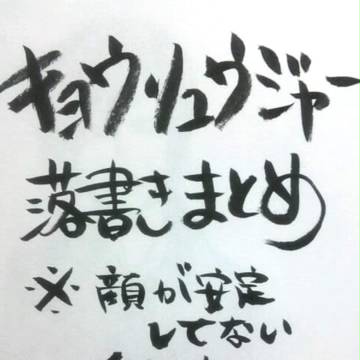 キョウリュウジャー
落書きまとめ
※顔が安定
してない